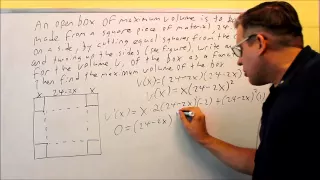 An open box of maximum volume is to be
made from a square piece of material, 24
on a side, by cutting equal squares from the c
and turning up the sides (see figure). Write a
for the volume V, of the box as a func
then find the maximum volume of the box
x 24-2x x
V(x) = (24-2x)(24-2x)
V(x) = x(24-2x)²
V'(x) = x · 2(24-2x)(-2) + (24-2x)²(1)
0 = (24-2x)